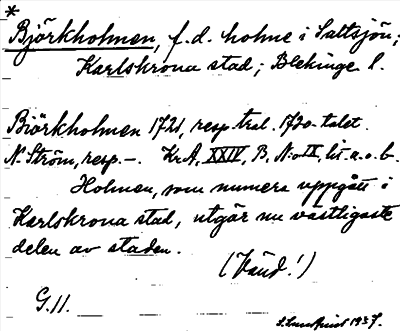 *
Björkholmen, f.d. holme i Saltsjön;
Karlskrona stad; Blekinge l.
Biörkholmen 1721, resp. trol. 1720-talet.
N. Ström, resp. –. Kr.A, XXIV, B, N:o IX, lit. a. o. b.
Holmen, som numera uppgått i
Karlskrona stad, utgör nu västligaste
delen av staden.
(Vänd!)
G.11.
1937.